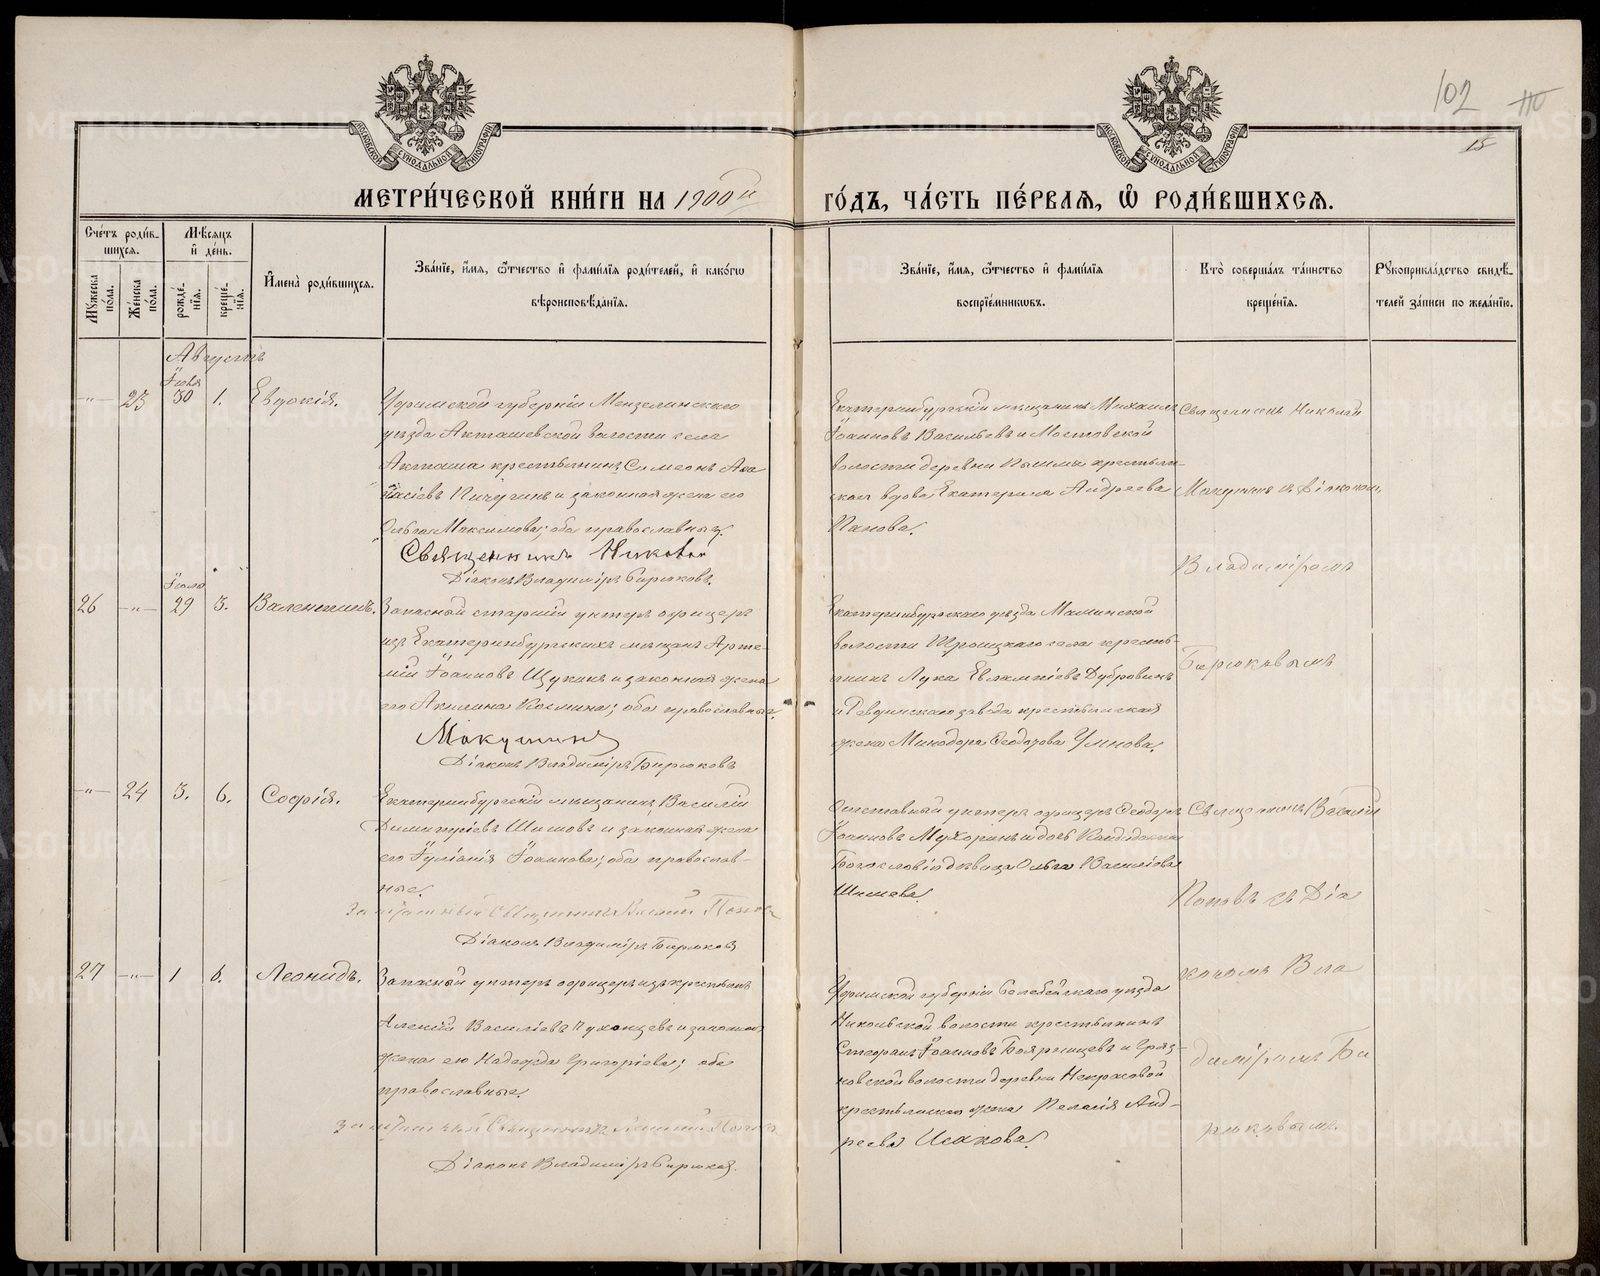 102
15
МОСКОВСКОЙ СѴНОДАЛЬНОЙ ТИПОГРАФІИ
МОСКОВСКОЙ СѴНОДАЛЬНОЙ ТИПОГРАФІИ
МЕТРИ́ЧЕСКОЙ КНИ́ГИ НА 1900й
ГО́ДЪ, ЧА́СТЬ ПЕ́РВАЯ, Ѽ РОДИ́ВШИХСЯ.
Сче́тъ роди́вшихся.
Мꙋ́жеска пола.
Же́нска пола.
Мѣ́сяцъ и҆ де́нь.
рожде́нїя.
креще́нїя.
И҆мена̀ роди́вшихся.
Зва́нїе, и҆́мя, ѻ҆́тчество и҆ фами́лїя роди́телей, и҆ како́гѡ вѣроисповѣ́данїя.
Зва́нїе, и҆́мя, ѻ҆́тчество и҆ фами́лїя воспрїе́мникѡвъ.
Кто̀ соверша́лъ та́инство креще́нїя.
Рꙋкоприкла́дство свидѣ́телей за́писи по жела́нїю.
Августъ
Іюля
-"- 23 30 1. Евдокія.
Уфимской губерніи Мензелинскаго
уѣзда Акташевской волости села
Акташа крестьянинъ Симеонъ Аѳа
насіевъ Пичугинъ и законная жена его
Ольга Максимова; оба православные.
Священникъ Николай
Діаконъ Владиміръ Бирюковъ.
Екатеринбургскій мѣщанинъ Михаилъ
Іоанновъ Васильевъ и Мостовской
волости деревни Пышмы крестьян-
ская вдова Екатерина Андреева
Панова.
Священникъ Николай
Макушинъ съ Діакономъ
Владиміромъ
Бирюковымъ
Іюля
26 -"- 29 3. Валентинъ.
Запасный старшій унтеръ офицеръ
изъ Екатеринбургскихъ мѣщанъ Арте-
мій Іоанновъ Щукинъ и законная жена
его Акилина Космина; оба православные.
Макушинъ
Діаконъ Владиміръ Бирюковъ
Екатеринбургскаго уѣзда Маминской
волости Троицкаго села кресть-
янинъ Лука Евлампіевъ Дубровинъ
и Ревдинскаго завода крестьянская
жена Минодора Ѳеодорова Умнова.
-"- 24 3. 6. Софія.
Екатеринбургскій мѣщанинъ Василій
Димитріевъ Шишовъ и законная жена
его Іуліанія Іоаннова; оба православ-
ные.
Заштатный Священникъ Василій Поповъ
Діаконъ Владиміръ Бирюковъ
Отставной унтеръ офицеръ Ѳеодоръ
Іоанновъ Мухоринъ и дочь Кандидата
Богословія дѣвица Ольга Василіева
Шишева.
Священникъ Василій
Поповъ съ Діа
кономъ Вла
диміромъ Би
рюковымъ.
27 -"- 1 6. Леонидъ.
Запасный унтеръ офицеръ изъ крестьянъ
Алексій Василіевъ Пухонцевъ и законная
жена его Надежда Григоріева; оба
православные.
Заштатный Священникъ Василій Поповъ
Діаконъ Владиміръ Бирюковъ.
Уфимской губерніи Белебейскаго уѣзда
Никольской волости крестьянинъ
Стефанъ Іоанновъ Бояринцевъ и Гряз-
новской волости деревни Некрасовой
крестьянская жена Пелагія Анд-
реева Исакова.